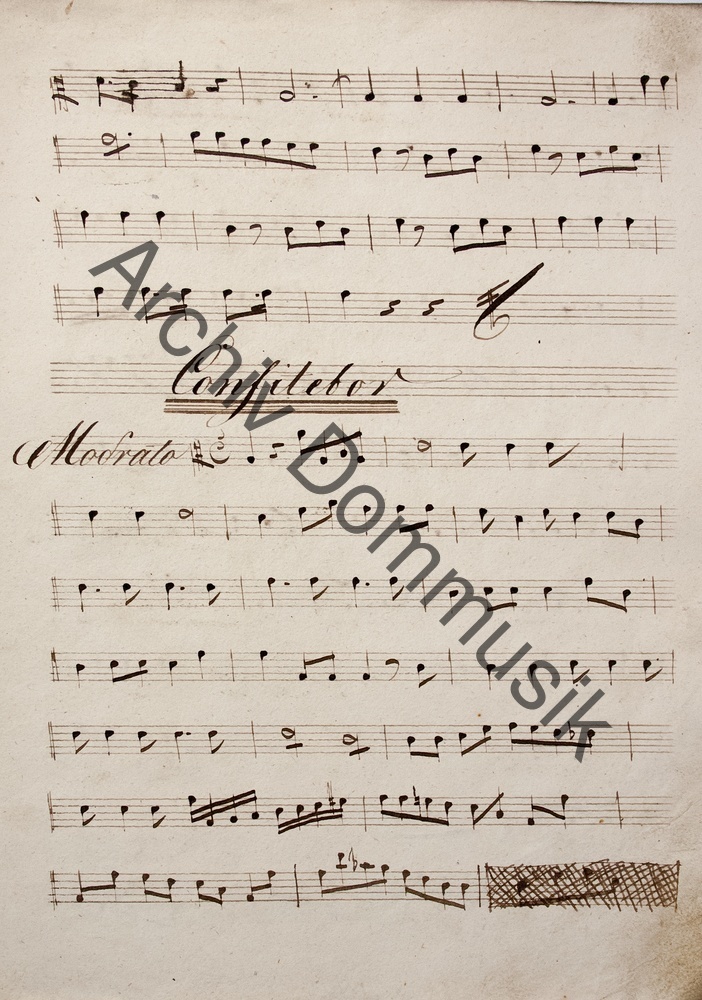 Confitebor
Modrato
Archiv Dommusik